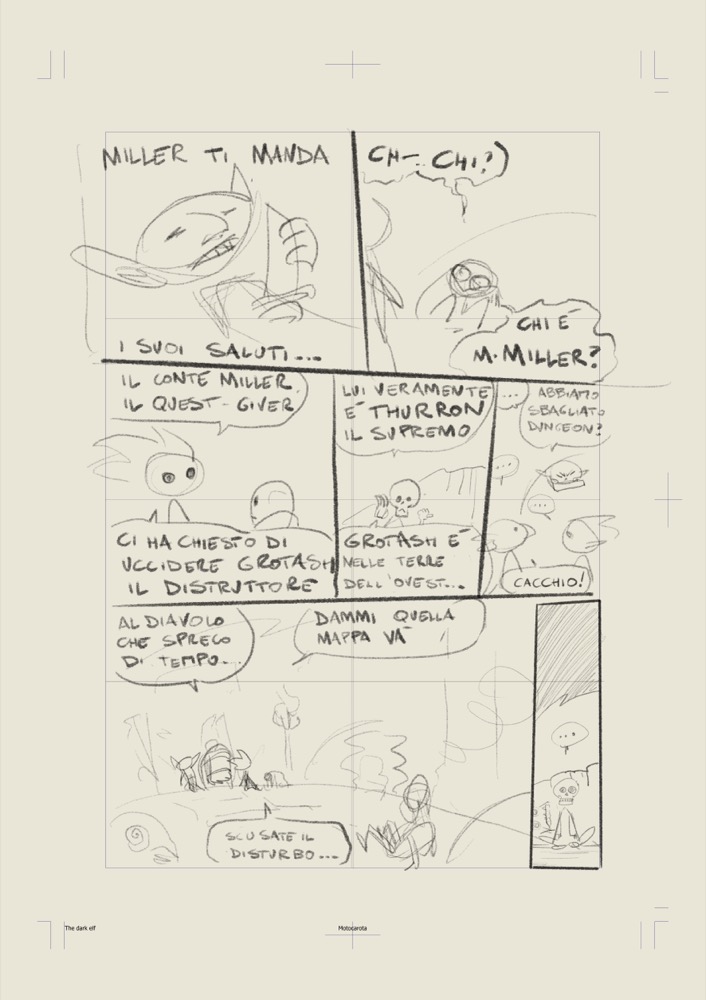 MILLER TI MANDA
I SUOI SALUTI...
CH-. CHI?
CHI È
M. MILLER?
IL CONTE MILLER.
IL QUEST-GIVER
CI HA CHIESTO DI
UCCIDERE GROTASH
IL DISTRUTTORE
LUI VERAMENTE
E' THURRON
IL SUPREMO
GROTASH E'
NELLE TERRE
DELL'OVEST...
...
ABBIAMO
SBAGLIATO
DUNGEON?
...
...
CACCHIO!
AL DIAVOLO
CHE SPRECO
DI TEMPO...
DAMMI QUELLA
MAPPA VA'
SCUSATE IL
DISTURBO...
...
The dark elf
Motocarota